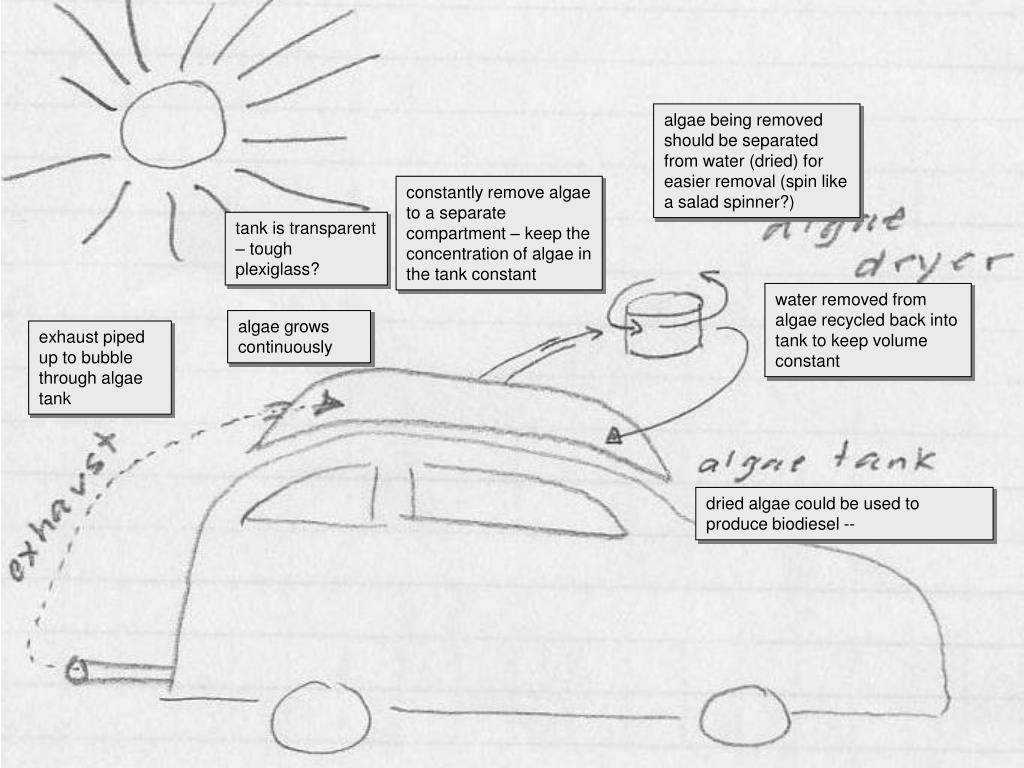 algae being removed
should be separated
from water (dried) for
easier removal (spin like
a salad spinner?)
constantly remove algae
to a separate
compartment – keep the
concentration of algae in
the tank constant
tank is transparent
– tough
plexiglass?
algae
dryer
water removed from
algae recycled back into
tank to keep volume
constant
algae grows
continuously
exhaust piped
up to bubble
through algae
tank
exhaust
algae tank
dried algae could be used to
produce biodiesel --